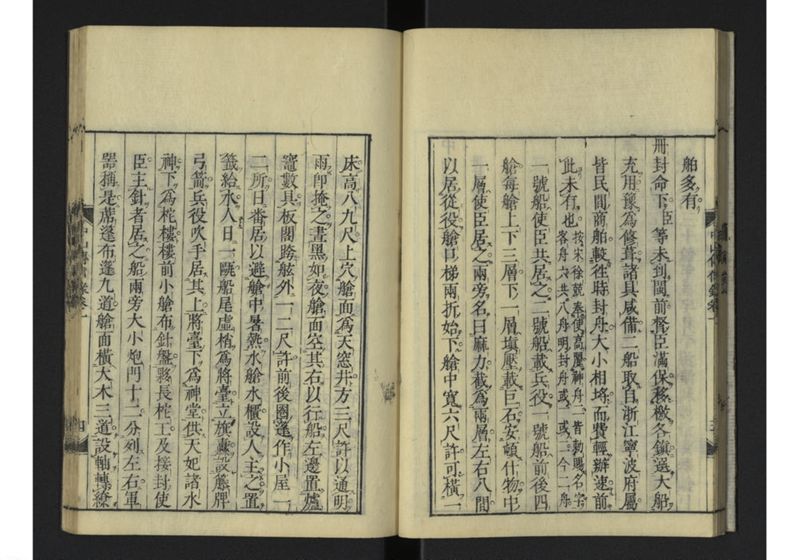 舶多有
冊封命下臣等未到閩前督臣滿保移檄各鎮選大船
充用豫為修葺諸具咸備二船取自浙江寧波府屬
皆民間商舶較徃時封舟大小相埓而費輕辦速前
此未有也
按宋徐兢奉使高麗神舟二皆勅賜名字
客舟六共八舟明封舟或一或二今二舟
一號船使臣共居之二號船載兵役一號船前後四
艙每艙上下三層下一層塡壓載巨石安頓什物中
一層使臣居之兩旁名曰麻力截為兩層左右八間
以居從役艙口梯兩折始下艙中寬六尺許可橫一
床高八九尺上穴艙面為天窓井方三尺許以通明
雨卽掩之晝黑如夜艙面空其右以行船左邊置爐
竈數具板閣跨舷外一二尺許前後圈篷作小屋一
二所日番居以避艙中暑熱水艙水櫃設人主之置
籤給水人日一甌船尾虛梢為將臺立旗纛設藤牌
弓箭兵役吹手居其上將臺下為神堂供天妃諸水
神下為柁樓樓前小艙布針盤夥長柁工及接封使
臣主針者居之船兩旁大小炮門十二分列左右軍
器稱是蓆篷布篷九道艙面橫大木三道設軸轉繚